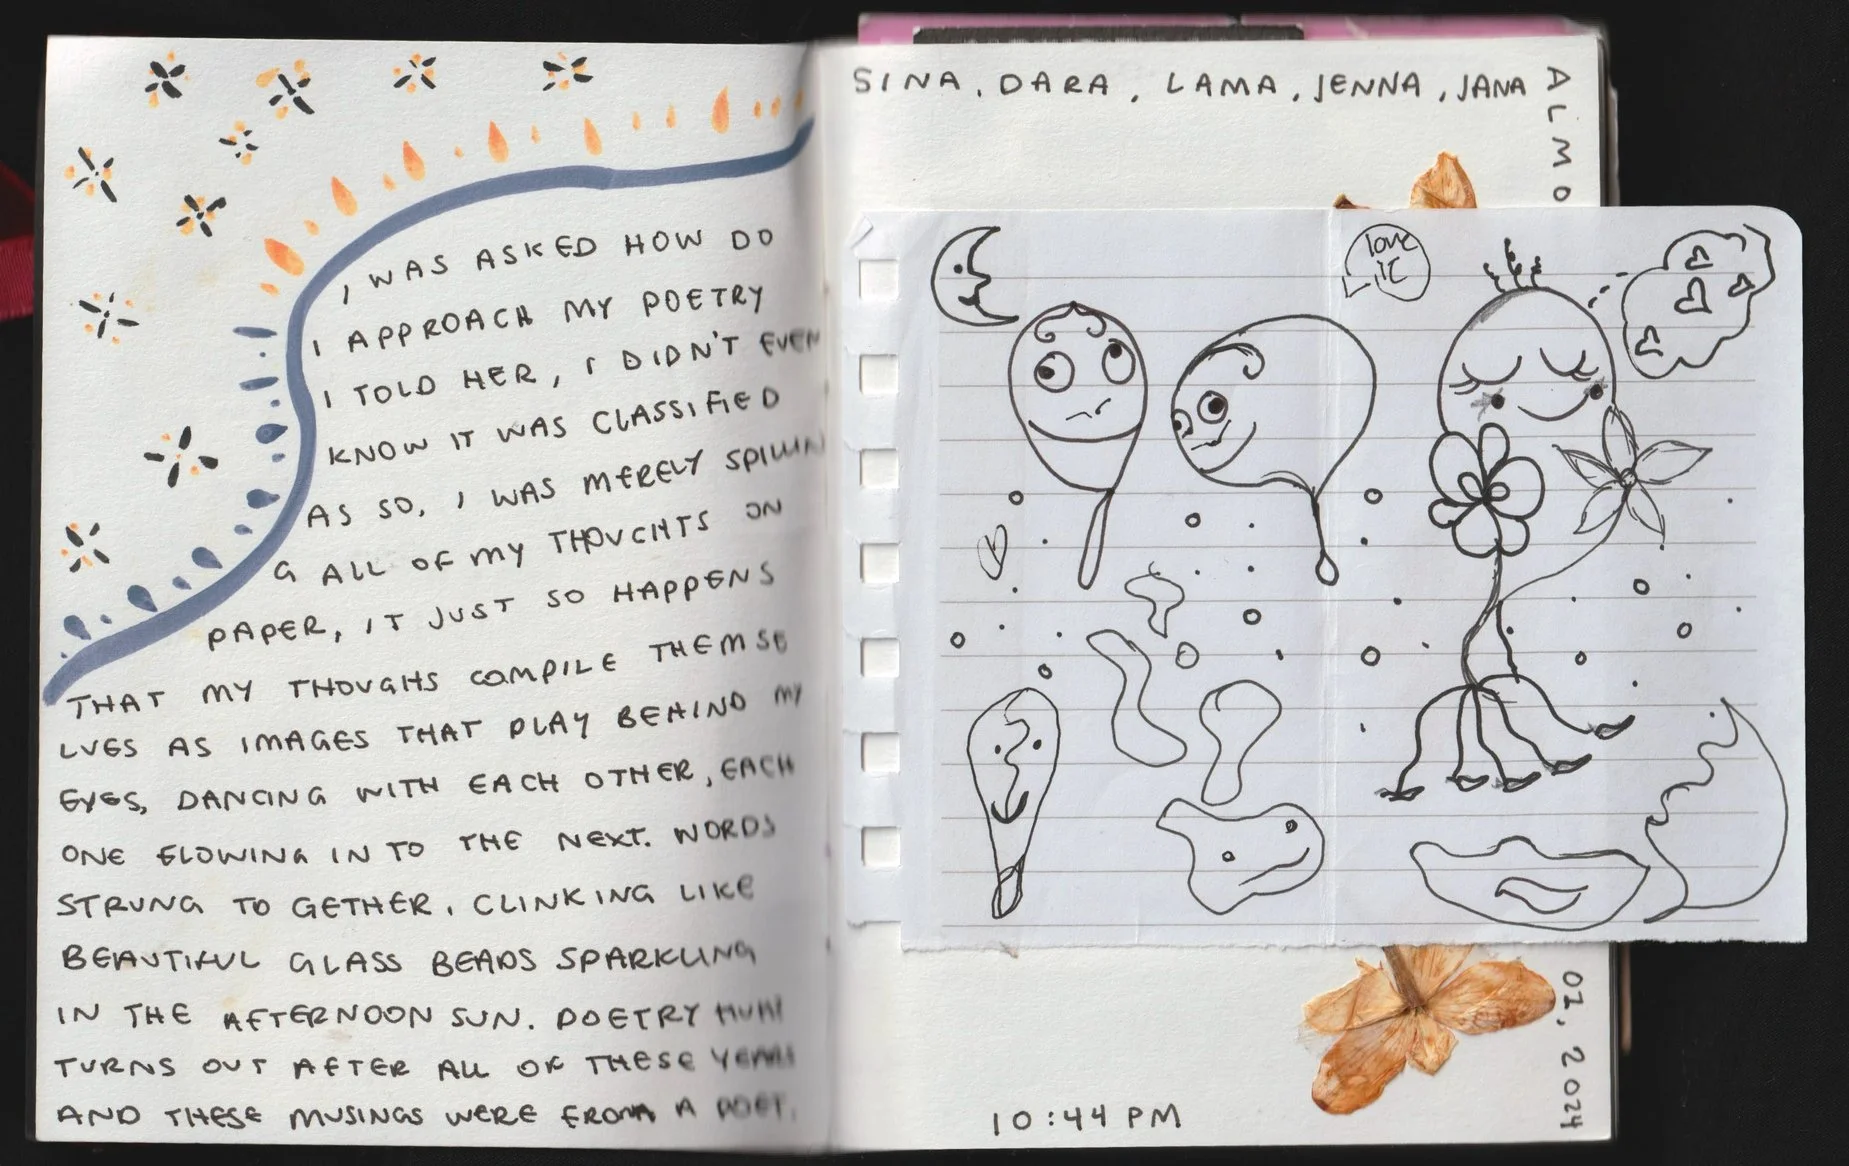 I WAS ASKED HOW DO
I APPROACH MY POETRY
I TOLD HER, I DIDN'T EVEN
KNOW IT WAS CLASSIFIED
AS SO, I WAS MERELY SPILLIN
G ALL OF MY THOUGHTS ON
PAPER, IT JUST SO HAPPENS
THAT MY THOUGHS COMPILE THEMSE
LVES AS IMAGES THAT PLAY BEHIND MY
EYES, DANCING WITH EACH OTHER, EACH
ONE FLOWING IN TO THE NEXT. WORDS
STRUNG TO GETHER, CLINKING LIKE
BEAUTIFUL GLASS BEADS SPARKLING
IN THE AFTERNOON SUN. POETRY HUH!
TURNS OUT AFTER ALL OF THESE YEARS
AND THESE MUSINGS WERE FROM A POET.
SINA, DARA, LAMA, JENNA, JANA
ALMO
love
it
01, 2024
10:44 PM